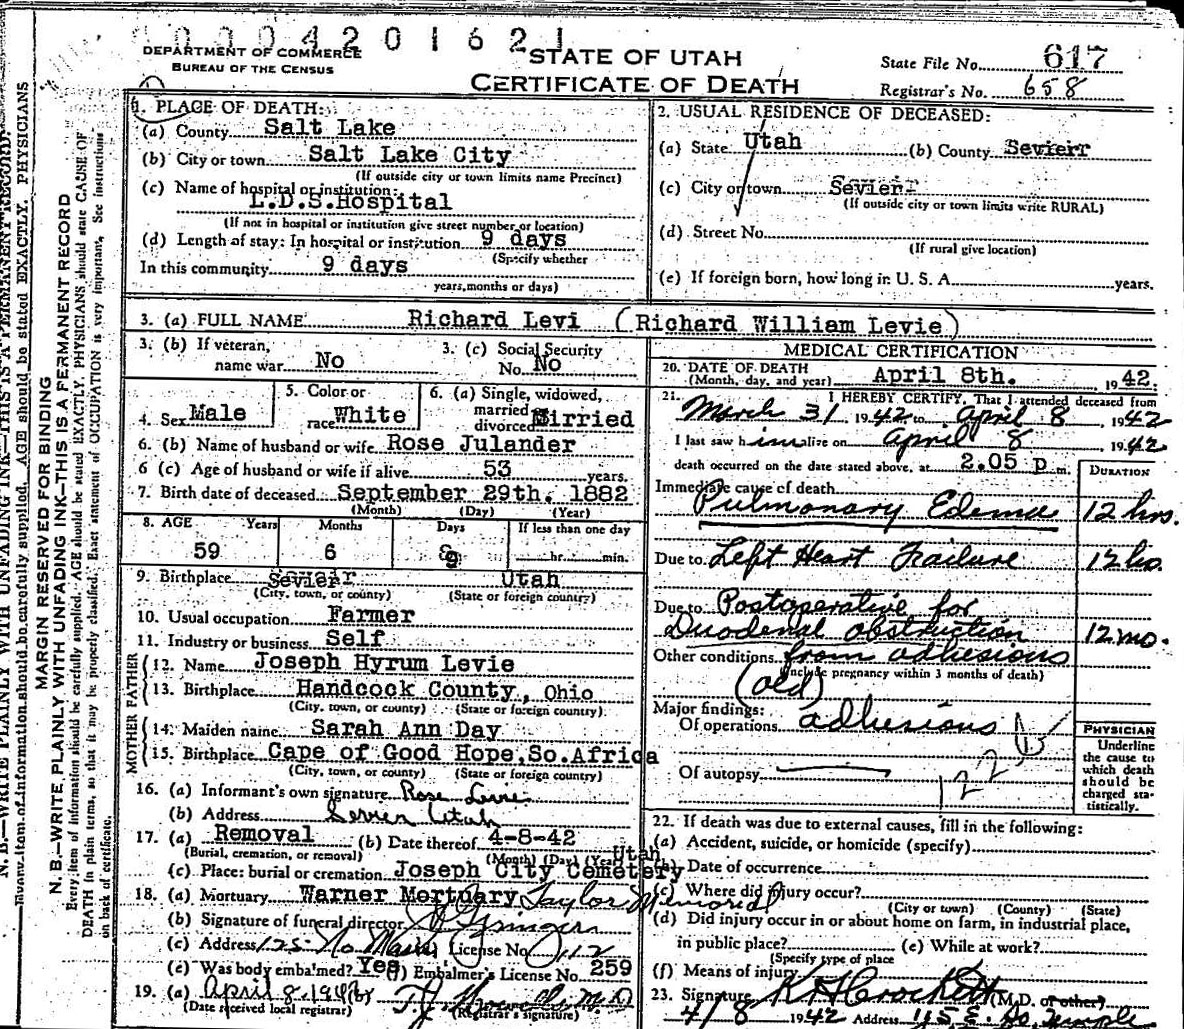 0 0 0 4 2 0 1 6 2 1
DEPARTMENT OF COMMERCE
BUREAU OF THE CENSUS
STATE OF UTAH
CERTIFICATE OF DEATH
State File No. 617
Registrar's No. 658
1. PLACE OF DEATH:
(a) County Salt Lake
(b) City or town Salt Lake City
(If outside city or town limits name Precinct)
(c) Name of hospital or institution:
L.D.S.Hospital
(If not in hospital or institution give street number or location)
(d) Length of stay: In hospital or institution 9 days
(Specify whether
In this community 9 days
years, months or days)
2. USUAL RESIDENCE OF DECEASED:
(a) State Utah (b) County Sevierr
(c) City or town Sevier
(If outside city or town limits write RURAL)
(d) Street No.
(If rural give location)
(e) If foreign born, how long in U. S. A. years.
3. (a) FULL NAME Richard Levi (Richard William Levie)
3. (b) If veteran,
name war No
3. (c) Social Security
No. No
4. Sex Male
5. Color or
race White
6. (a) Single, widowed,
married
divorced Mirried
6. (b) Name of husband or wife Rose Julander
6 (c) Age of husband or wife if alive 53 years.
7. Birth date of deceased September 29th. 1882
(Month) (Day) (Year)
8. AGE Years Months Days If less than one day
59 6 9 hr. min.
9. Birthplace Sevier Utah
(City, town, or county) (State or foreign country)
10. Usual occupation Farmer
11. Industry or business Self
FATHER
12. Name Joseph Hyrum Levie
13. Birthplace Handcock County, Ohio
(City, town, or county) (State or foreign country)
MOTHER
14. Maiden name Sarah Ann Day
15. Birthplace Cape of Good Hope,So.Africa
(City, town, or county) (State or foreign country)
16. (a) Informant's own signature Rose Levie
(b) Address Sevier Utah
17. (a) Removal (b) Date thereof 4-8-42
(Burial, cremation, or removal) (Month) (Day) (Year)
Utah
(c) Place: burial or cremation Joseph City Cemetery
18. (a) Mortuary Warner Mortuary Taylor Memorial
(b) Signature of funeral director
(c) Address 125 No Main License No. 112
(e) Was body embalmed? Yes (f) Embalmer's License No. 259
19. (a) April 8, 1942 (b) M.D.
(Date received local registrar) (Registrar's signature)
MEDICAL CERTIFICATION
20. DATE OF DEATH
(Month, day, and year) April 8th. 1942.
21. I HEREBY CERTIFY, That I attended deceased from
March 31 1942 to April 8, 1942
I last saw him alive on April 8 1942
death occurred on the date stated above, at 2.05 p m.
DURATION
Immediate cause of death
Pulmonary Edema 12 hrs.
Due to Left Heart Failure 12 ho.
Due to Postoperative for
Duodenal obstruction 12 mo.
Other conditions from adhesions
(Include pregnancy within 3 months of death)
(old)
Major findings:
Of operations adhesions
122 b
Of autopsy
PHYSICIAN
Underline
the cause to
which death
should be
charged sta-
tistically.
22. If death was due to external causes, fill in the following:
(a) Accident, suicide, or homicide (specify)
(b) Date of occurrence
(c) Where did injury occur?
(City or town) (County) (State)
(d) Did injury occur in or about home on farm, in industrial place,
in public place? (e) While at work?
(Specify type of place
(f) Means of injury
23. Signature K H Crockett (M.D. or other)
4/8 1942 Address 115 E. So. Temple
N. B.—WRITE PLAINLY WITH UNFADING INK—THIS IS A PERMANENT RECORD
Every item of information should be carefully supplied. AGE should be stated EXACTLY. PHYSICIANS
MARGIN RESERVED FOR BINDING
N. B.—WRITE PLAINLY WITH UNFADING INK—THIS IS A PERMANENT RECORD
Every item of information should be carefully supplied. AGE should be stated EXACTLY. PHYSICIANS should state CAUSE OF
DEATH in plain terms, so that it may be properly classified. Exact statement of OCCUPATION is very important. See instructions
on back of certificate.